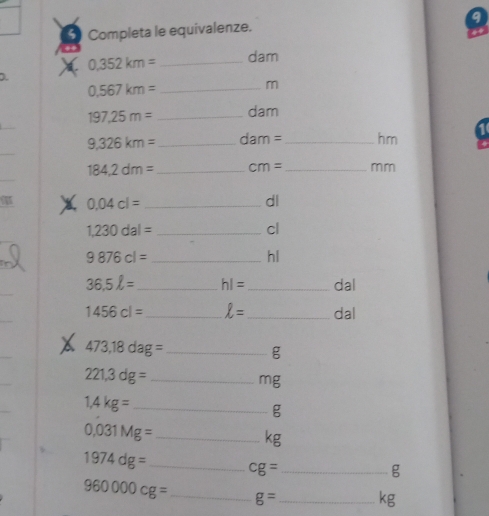 5 Completa le equivalenze.
9
0,352 km = ________ dam
0,567 km = ________ m
197,25 m = ________ dam
9,326 km = ________ dam = ________ hm
10
184,2 dm = ________ cm = ________ mm
0,04 cl = ________ dl
1,230 dal = ________ cl
9 876 cl = ________ hl
36,5 ℓ = ________ hl = ________ dal
1 456 cl = ________ ℓ = ________ dal
473,18 dag = ________ g
221,3 dg = ________ mg
1,4 kg = ________ g
0,031 Mg = ________ kg
1 974 dg = ________ cg = ________ g
960 000 cg = ________ g = ________ kg